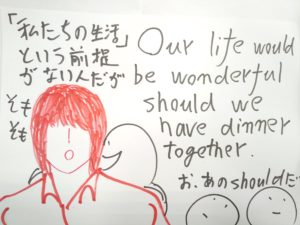 「私たちの生活」
という前提
がないんだが
そも
そも
Our life would
be wonderful
should we
have dinner
together.
お、あのshouldだ